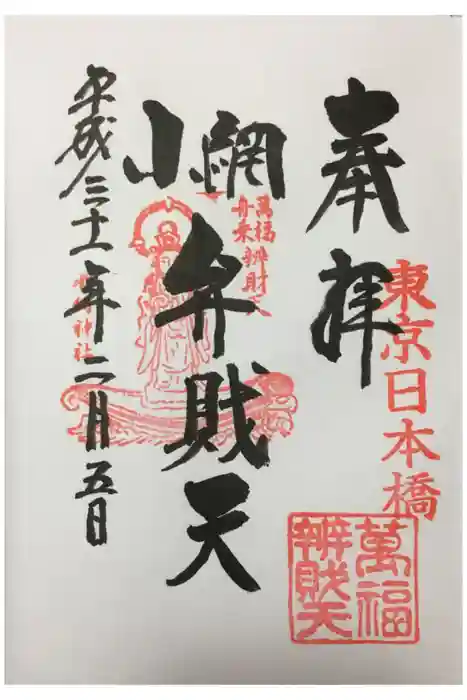 奉拝
東京日本橋
萬福
辨財天
小網
弁財天
萬福辨財天
舟乗
神社
平成三十一年二月五日